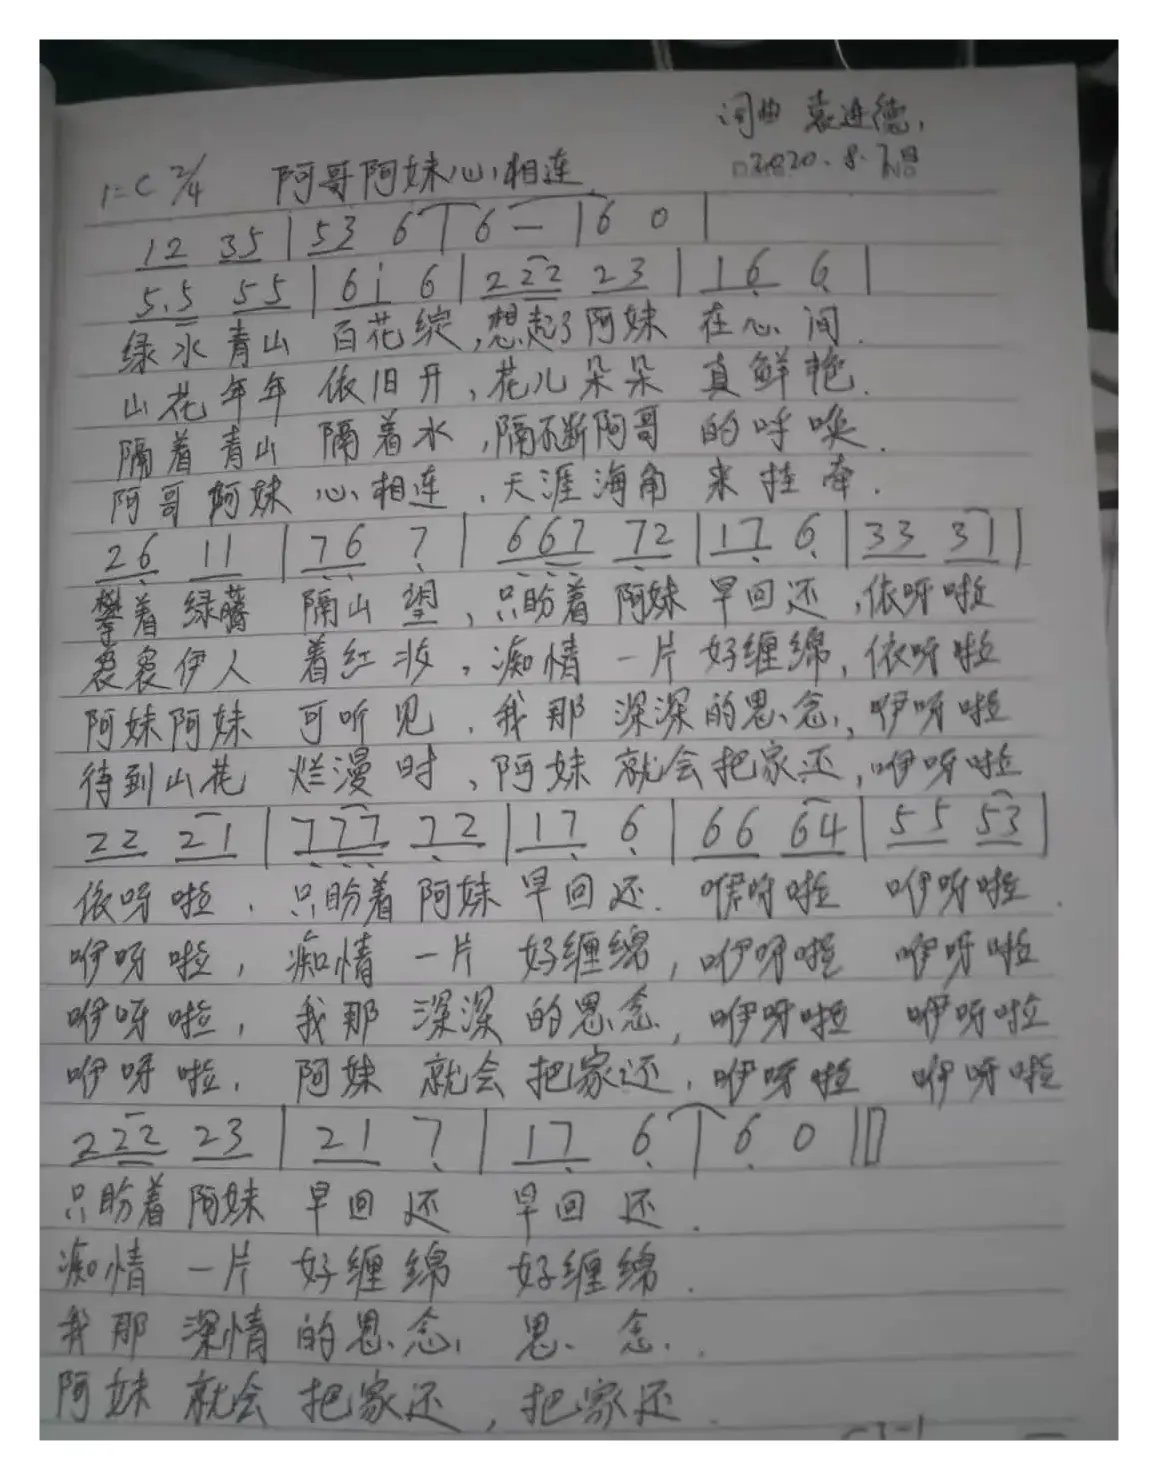 词曲 袁进德.
2020.8.7日
1=C 2/4 阿哥阿妹心相连
12 35 | 53 6 | 6 — | 6 0 |
5.5 55 | 6i 6 | 222 23 | 16 6 |
绿水青山 百花绽,想起了阿妹 在心间.
山花年年 依旧开,花儿朵朵 真鲜艳.
隔着青山 隔着水,隔不断阿哥 的呼唤.
阿哥阿妹 心相连,天涯海角 来挂牵.
26 11 | 76 7 | 667 72 | 17 6 | 33 31 |
攀着绿藤 隔山望,只盼着阿妹 早回还,依呀啦
袅袅伊人 着红妆,痴情一片 好缠绵,依呀啦
阿妹阿妹 可听见,我那深深的思念,咿呀啦
待到山花 烂漫时,阿妹就会把家还,咿呀啦
22 21 | 777 72 | 17 6 | 66 64 | 55 53 |
依呀啦,只盼着阿妹 早回还. 咿呀啦 咿呀啦.
咿呀啦,痴情一片 好缠绵,咿呀啦 咿呀啦
咿呀啦,我那深深的思念,咿呀啦 咿呀啦
咿呀啦,阿妹就会把家还,咿呀啦 咿呀啦
222 23 | 21 7 | 17 6 | 6 0 ||
只盼着阿妹 早回还 早回还.
痴情一片 好缠绵 好缠绵.
我那深情的思念, 思念.
阿妹就会把家还,把家还.